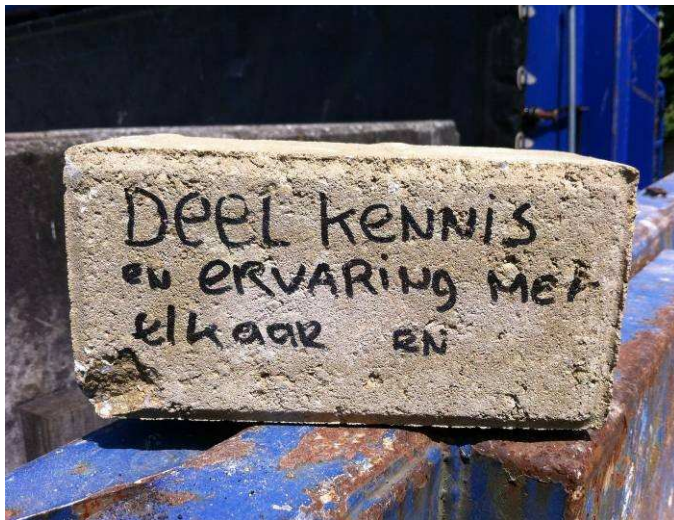 Deel kennis
en ervaring met
elkaar en